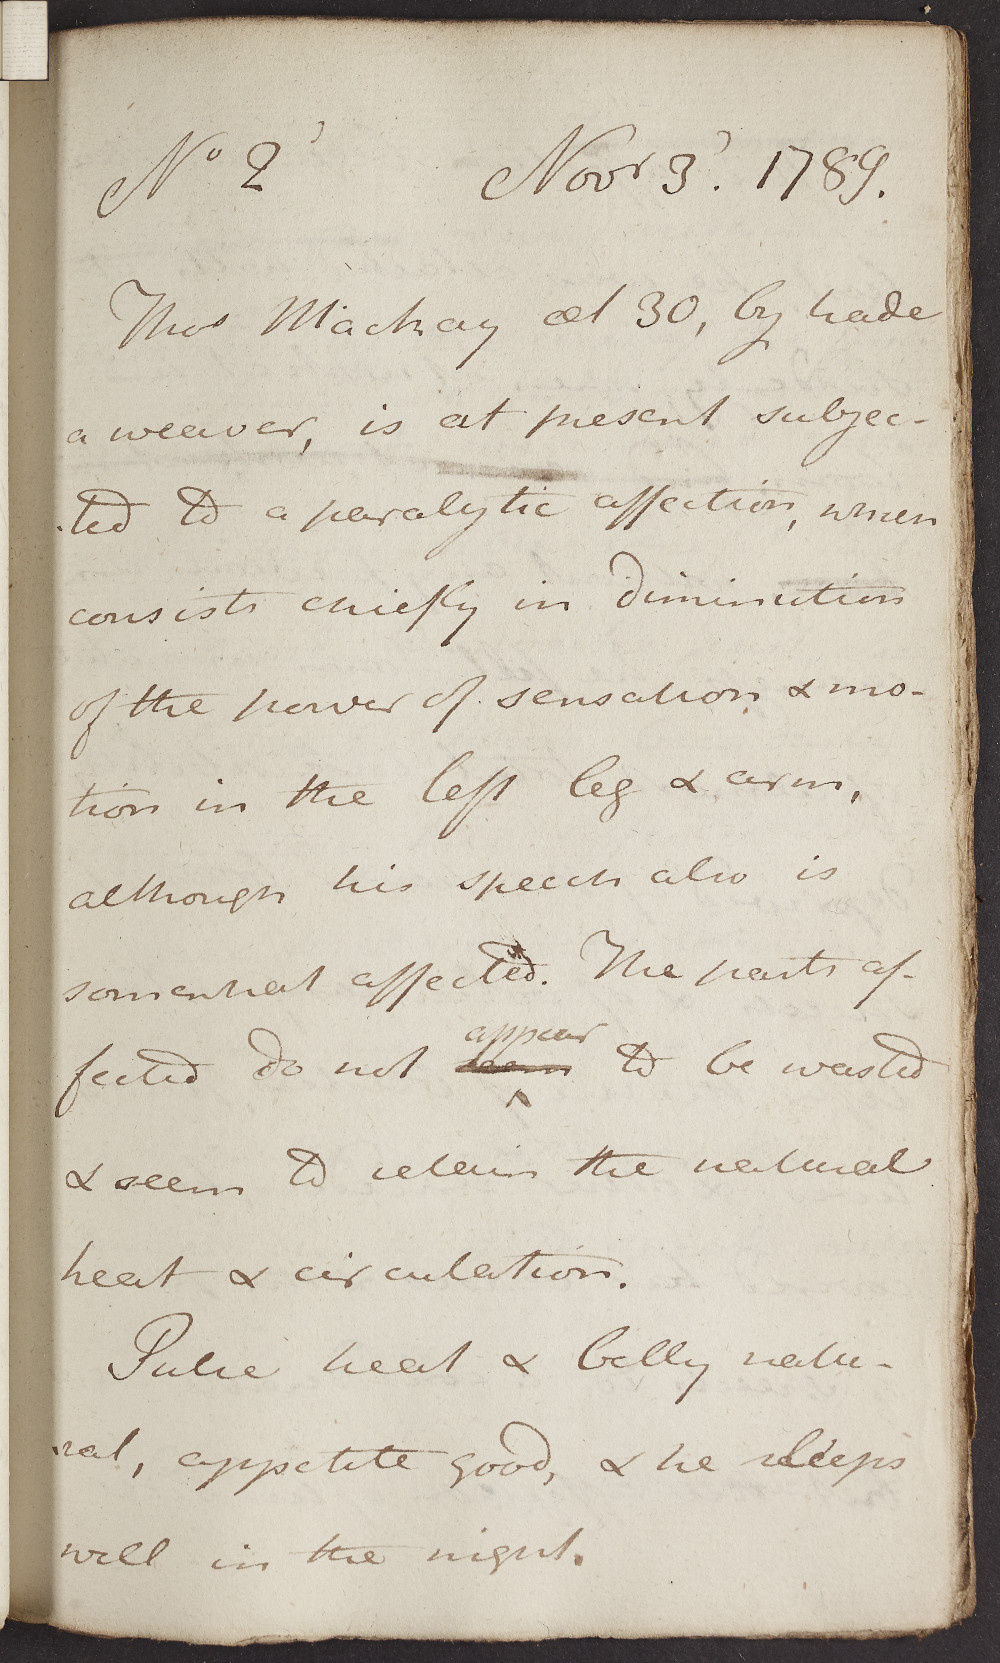 No 2 Novr 3. 1789.
Thos Mackay æt 30, by trade
a weaver, is at present subjec-
ted to a paralytic affection, which
consists chiefly in diminution
of the power of sensation & mo-
tion in the left leg & arm,
although his speech also is
somewhat affected. The parts af-
appear
fected do not seem to be wasted
& seem to retain the natural
heat & circulation.
Pulse heat & belly natu-
ral, appetite good, & he sleeps
well in the night.